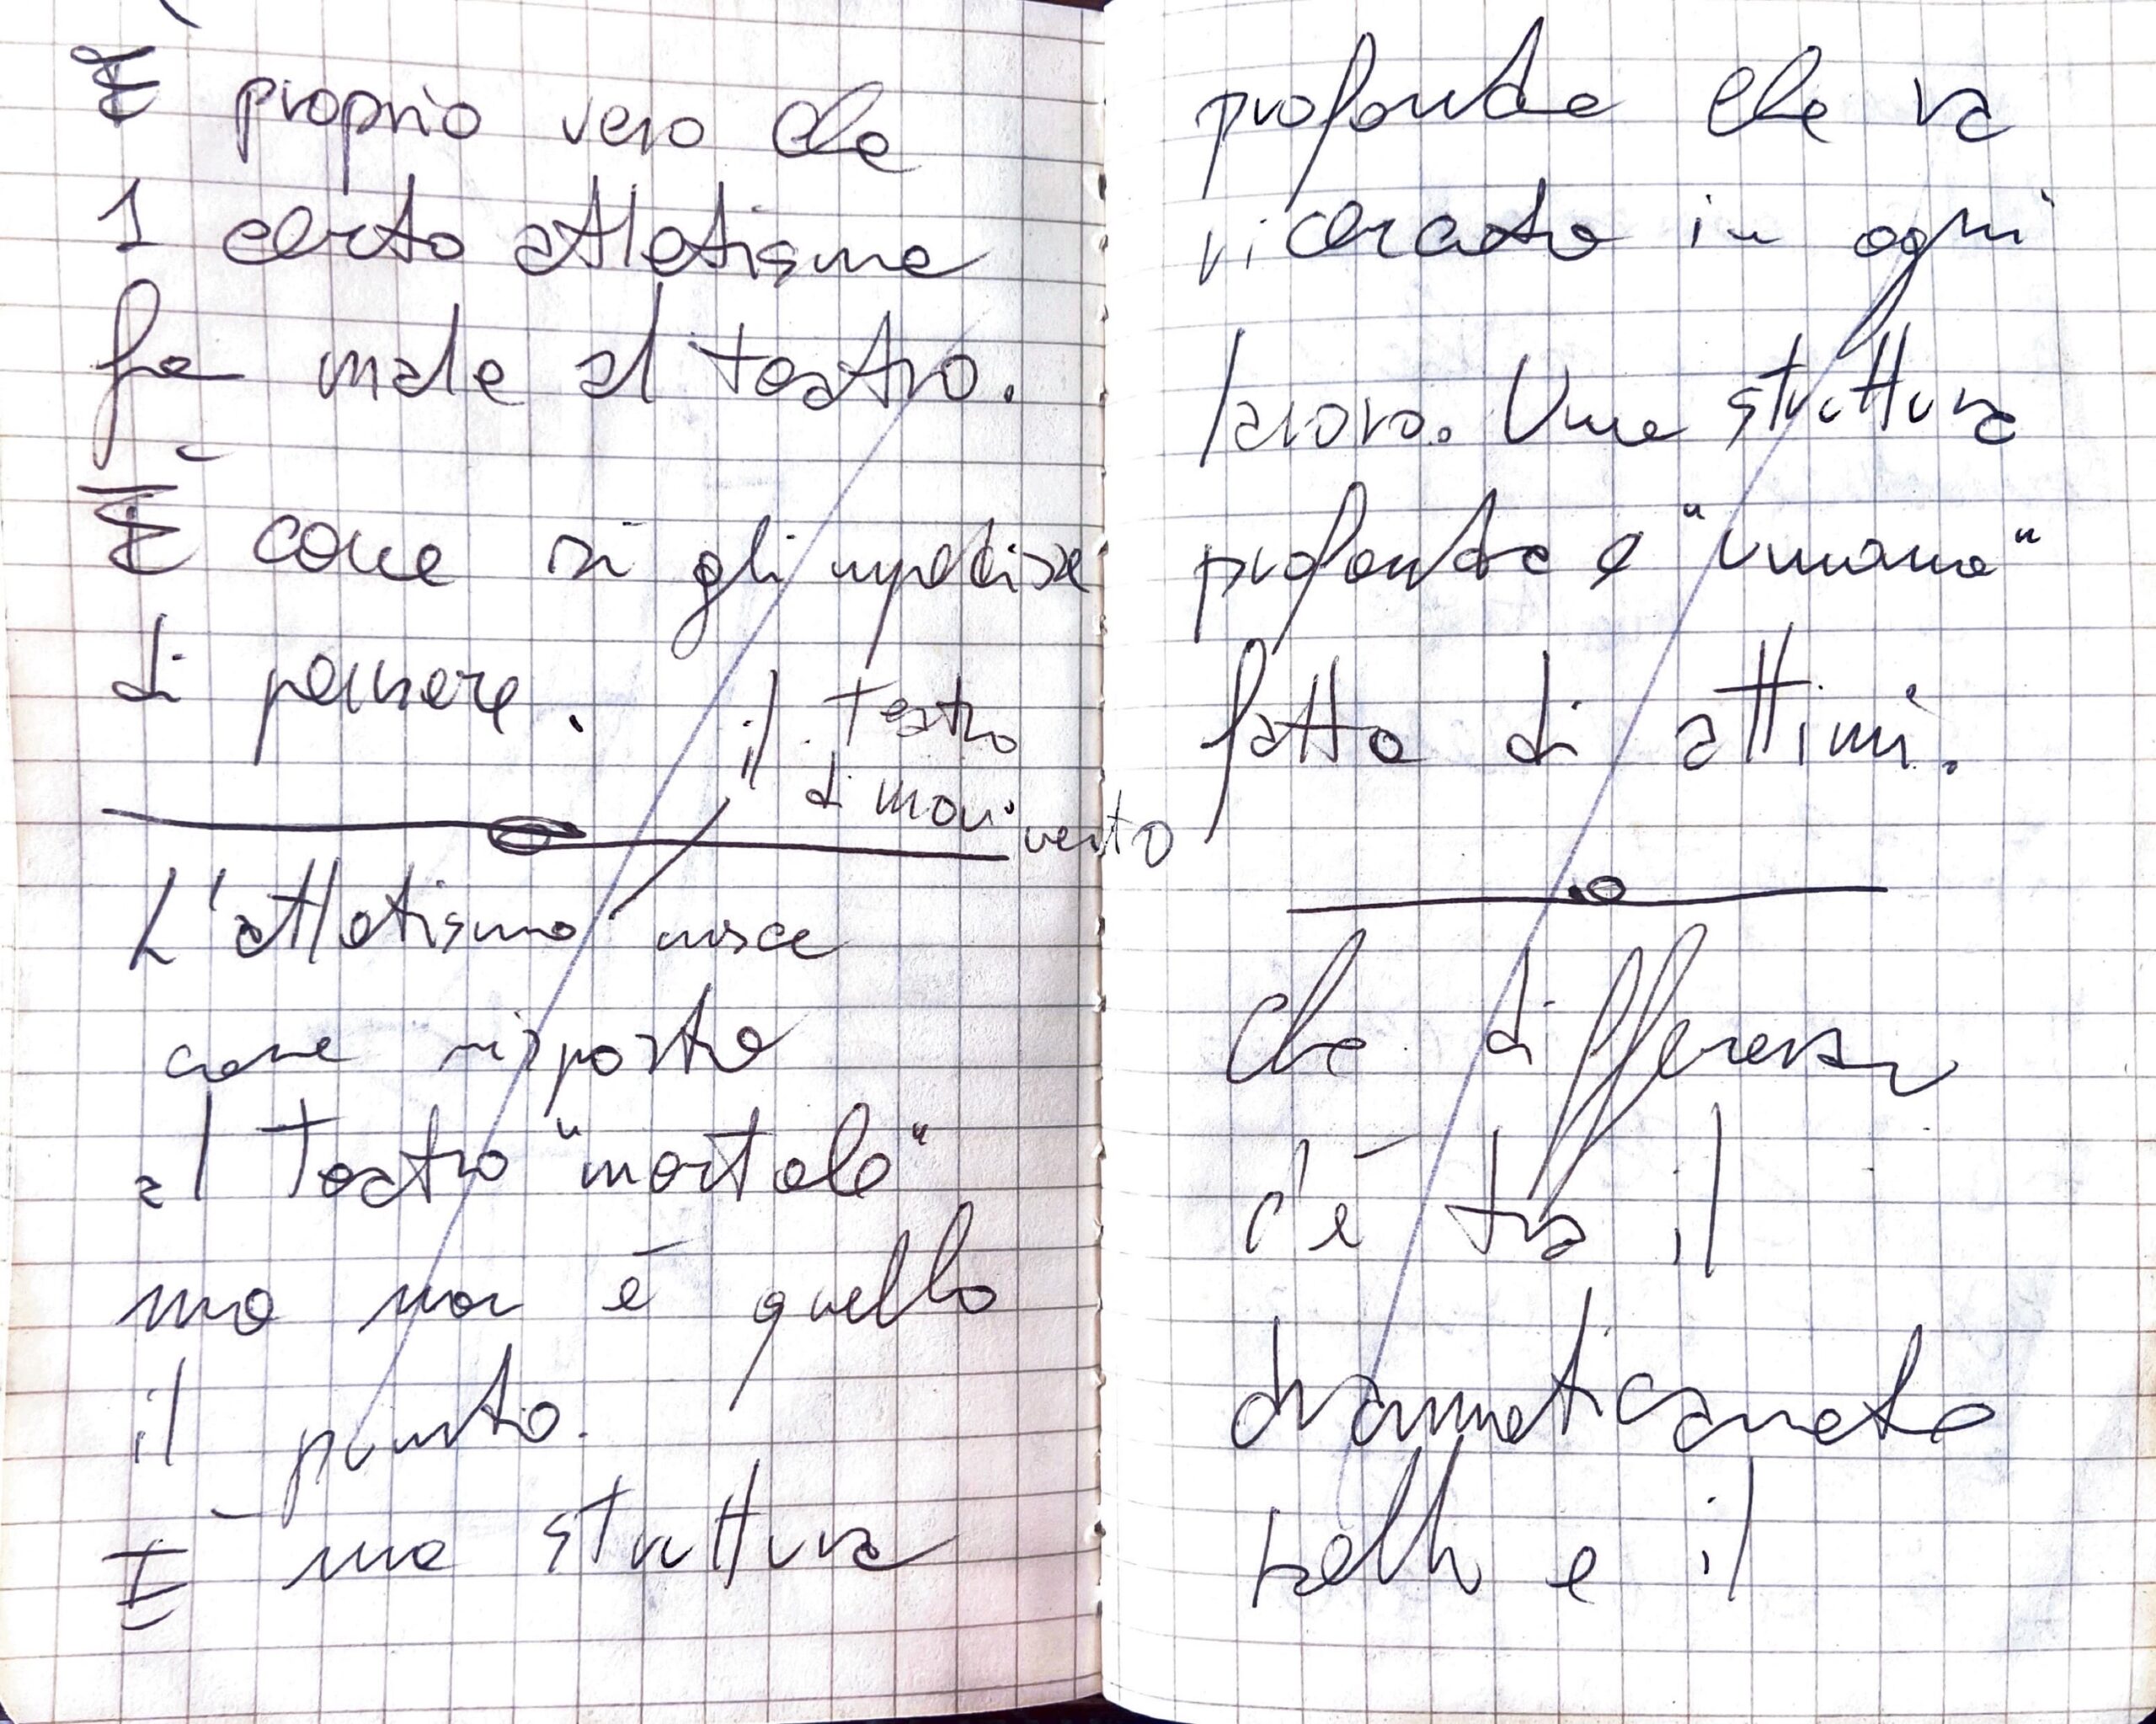 È proprio vero che
1 certo atletismo
fa male al teatro.
È come si gli impedisse
di pensare.
il teatro
di movimento
L'atletismo nasce
come risposta
al Teatro "mortale"
ma non è quello
il punto.
È una struttura
profonda che va
ricercata in ogni
lavoro. Una struttura
profonda e "umana"
fatta di attimi.
Che differenza
c'è tra il
drammaticamente
bello e il